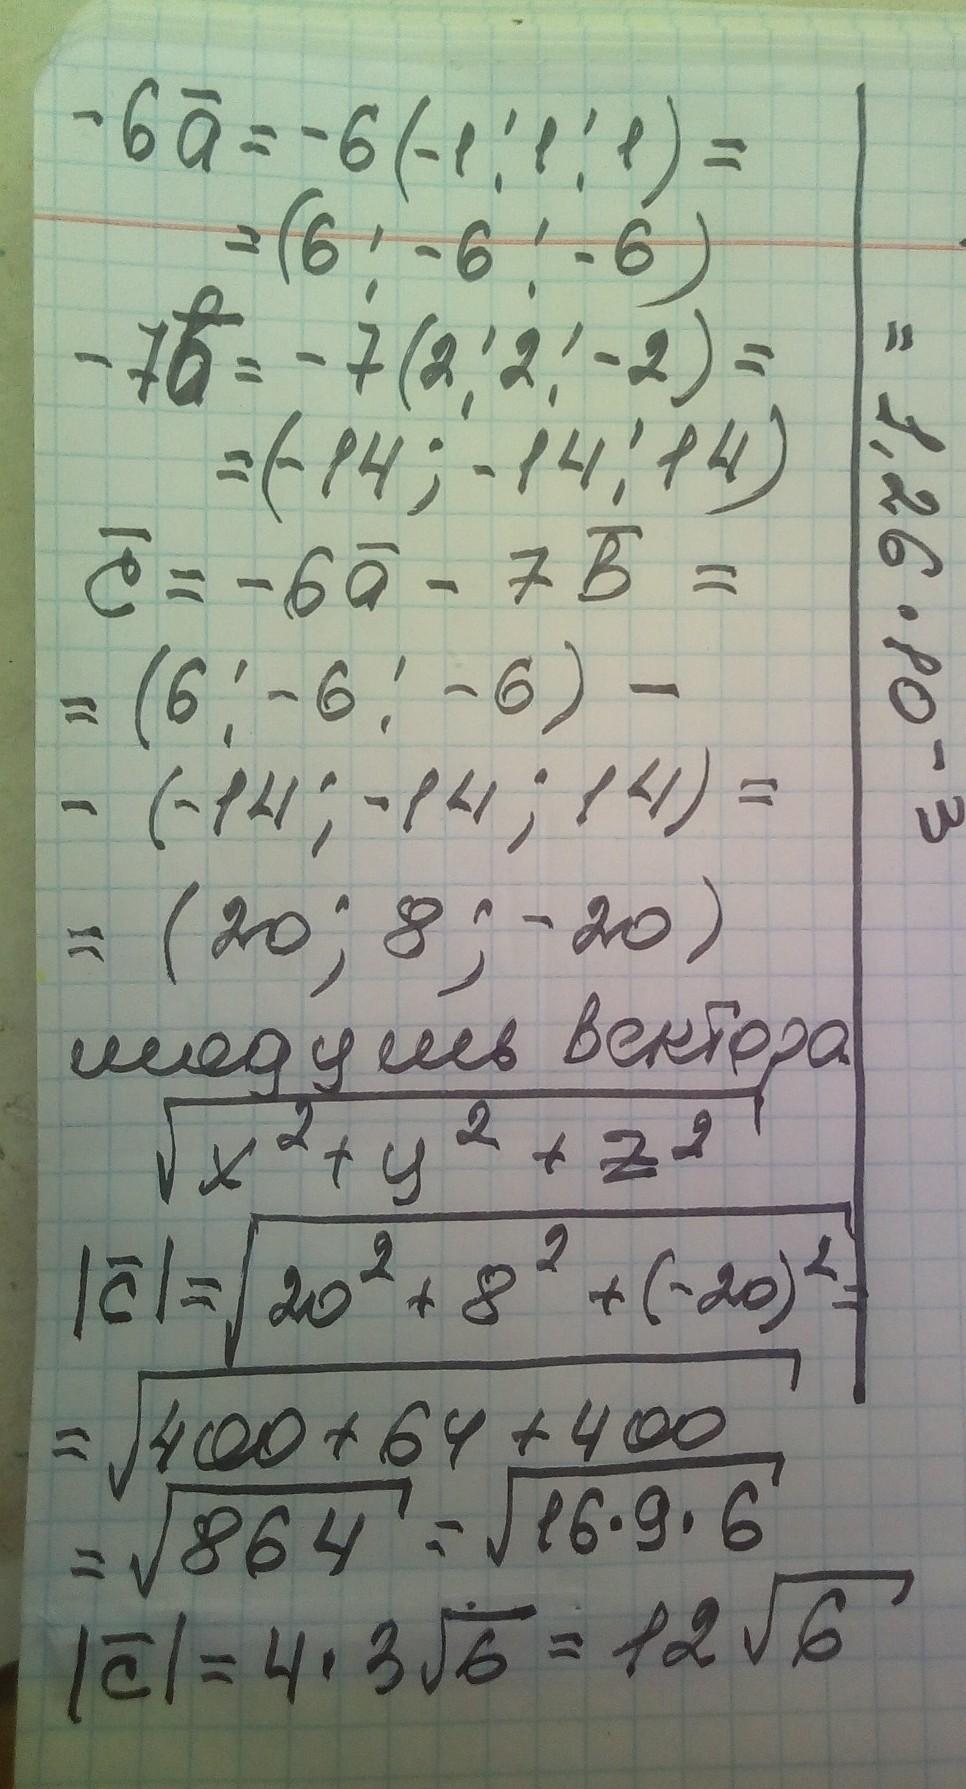 -6a̅ = -6(-1; 1; 1) =
= (6; -6; -6)
-7b̅ = -7(2; 2; -2) =
= (-14; -14; 14)
c̅ = -6a̅ - 7b̅ =
= (6; -6; -6) -
- (-14; -14; 14) =
= (20; 8; -20)
модуль вектора
√(x² + y² + z²)
|c̅| = √(20² + 8² + (-20)²) =
= √(400 + 64 + 400)
= √864 = √(16·9·6)
|c̅| = 4·3√6 = 12√6
= 1,26·10⁻³